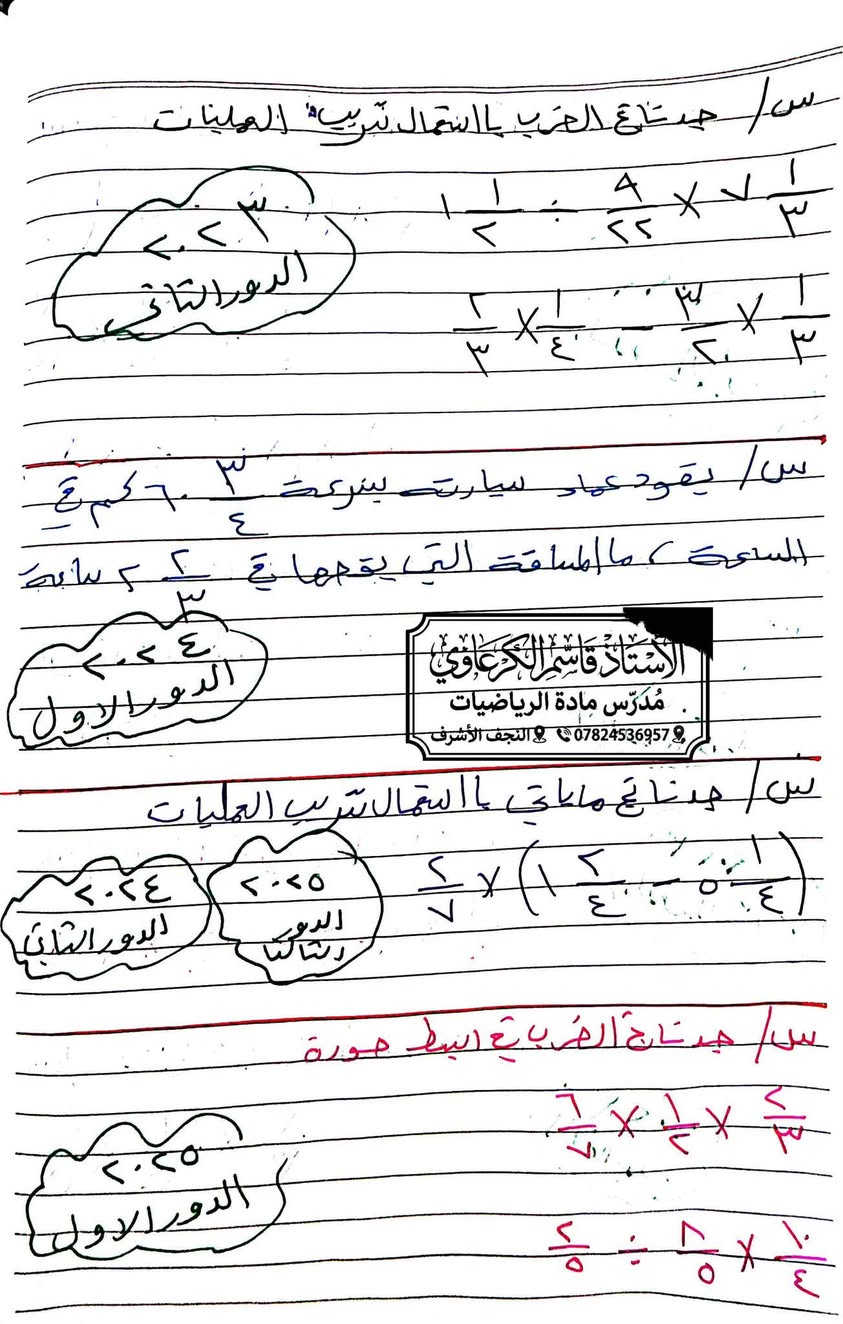 س/ جد ناتج الضرب بااستعمال ترتيب العمليات
٧ ١/٣ × ٨/٢٢ ÷ ١ ١/٢
٢٠٢٣
الدور الثاني
١/٣ × ٣/٢ − ١/٤ × ٢/٣
س/ يقود عماد سيارته بسرعة ٣/٤ ٦٠ كم في
الساعة، ما المسافة التي يقطعها في ٢/٣ ٢ ساعة
٢٠٢٤
الدور الاول
الأستاذ قاسم الكرعاوي
مُدرّس مادة الرياضيات
07824536957 النجف الأشرف
س/ جد ناتج ماياتي بااستعمال ترتيب العمليات
(٥ ١/٤ − ١ ٢/٤) × ٢/٧
٢٠٢٥
الدور
الثالث
٢٠٢٤
الدور الثاني
س/ جد ناتج الضرب في ابسط صورة
٢/٣ × ١/٢ × ٦/٧
٢٠٢٥
الدور الاول
١٠/٤ × ٨/٥ ÷ ٢/٥